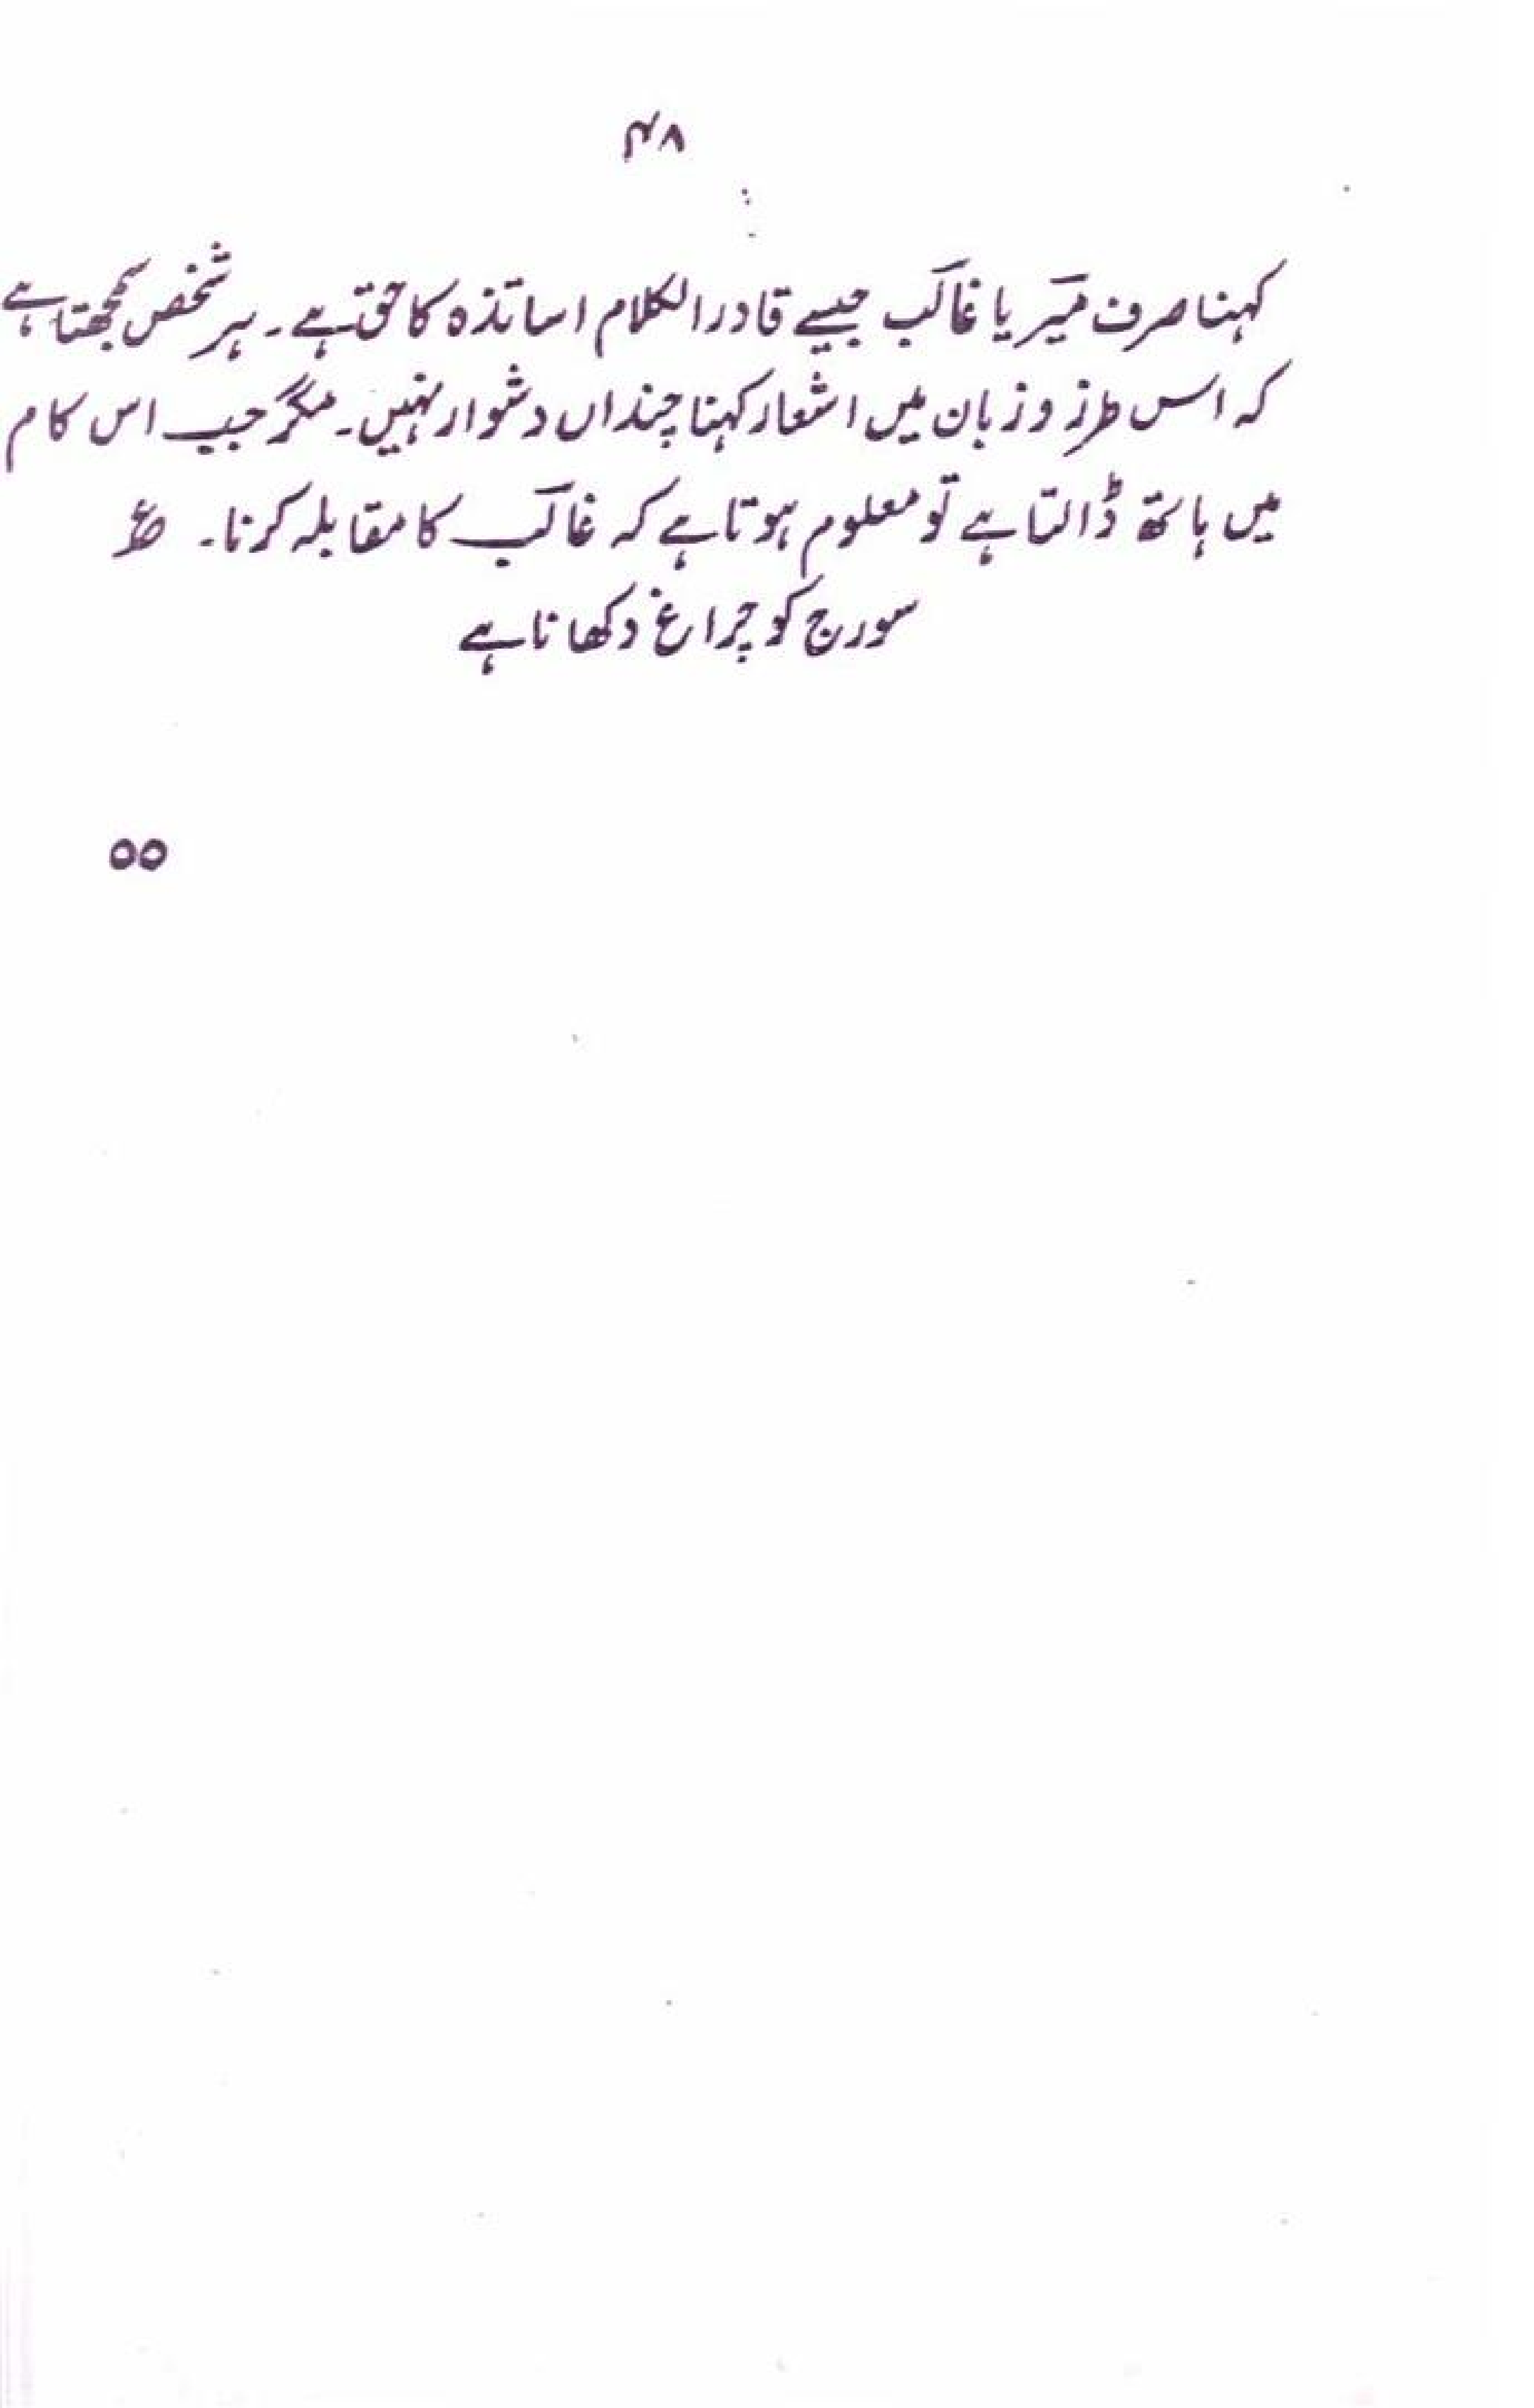 ۴۸
کہنا صرف میرؔ یا غالبؔ جیسے قادر الکلام اساتذہ کا حق ہے۔ ہر شخص سمجھتا ہے
کہ اس طرز و زبان میں اشعار کہنا چنداں دشوار نہیں۔ مگر جب اس کام
میں ہاتھ ڈالتا ہے تو معلوم ہوتا ہے کہ غالبؔ کا مقابلہ کرنا۔ ؏
سورج کو چراغ دکھانا ہے
٥٥